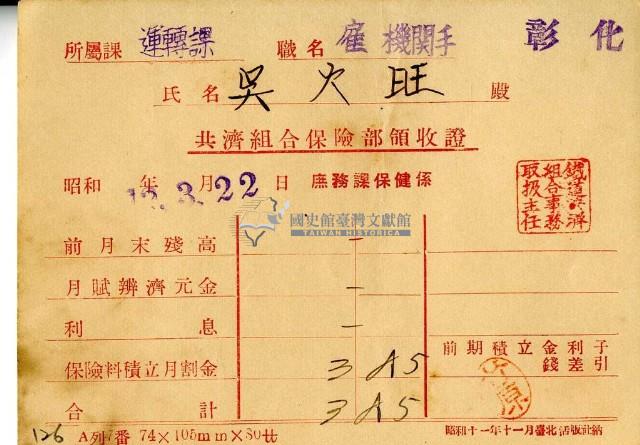 所屬課 運轉課 職名 雇 機関手 彰化
氏名 吳火旺 殿
共濟組合保險部領收證
昭和 12. 年 3. 月 22 日 庶務課保健係
鐵道共濟
組合事務
取扱主任
國史館臺灣文獻館
TAIWAN HISTORICA
前月末殘高 -
月賦辨濟元金 -
利息 -
保險料積立月割金 3 45
前期積立金利子
錢差引
合計 3 45
126 A列7番 74×105mm×80廿 昭和十一年十一月臺北活版社納